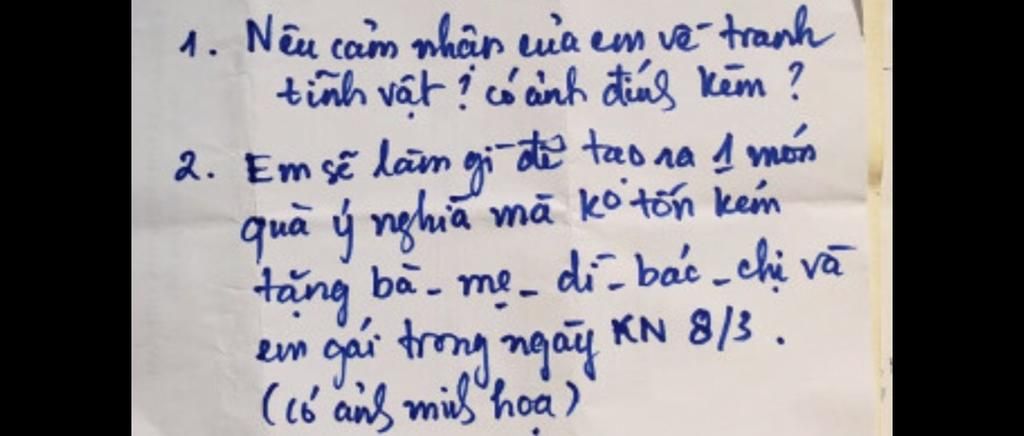 1. Nêu cảm nhận của em về tranh
tĩnh vật? có ảnh đính kèm?
2. Em sẽ làm gì để tạo ra 1 món
quà ý nghĩa mà ko tốn kém
tặng bà - mẹ - dì - bác - chị và
em gái trong ngày KN 8/3.
(có ảnh minh hoạ)